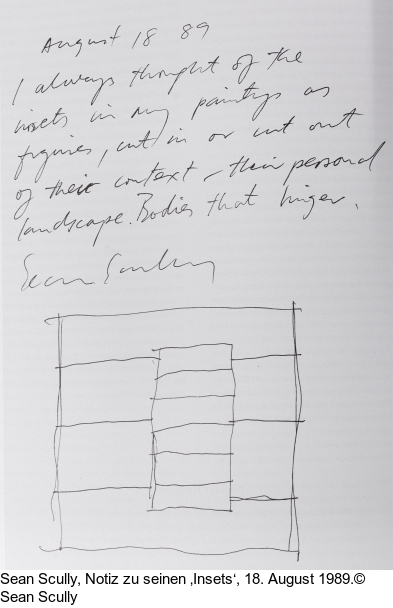 August 18 89
I always thought of the
insets in my paintings as
figures, cut in or cut out
of their context – their personal
landscape. Bodies that linger.
Sean Scully
Sean Scully, Notiz zu seinen ‚Insets‘, 18. August 1989.©
Sean Scully